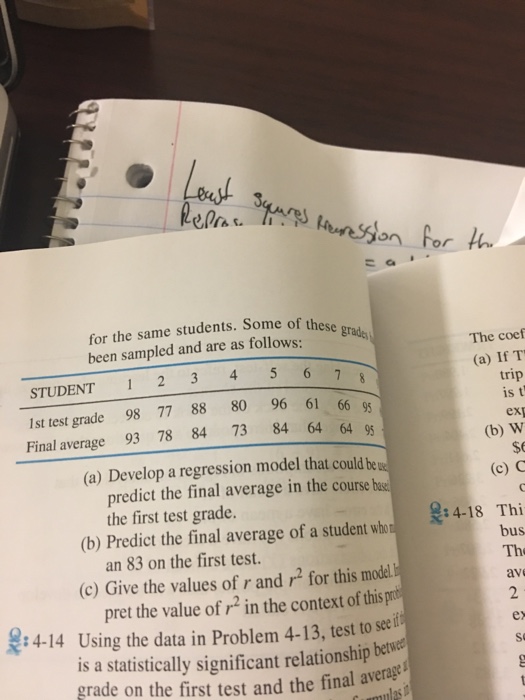 Least Squares Regression for
for the same students. Some of these grades
been sampled and are as follows:
STUDENT 1 2 3 4 5 6 7 8
1st test grade 98 77 88 80 96 61 66 95
Final average 93 78 84 73 84 64 64 95
(a) Develop a regression model that could be
predict the final average in the course
the first test grade.
(b) Predict the final average of a student who
an 83 on the first test.
(c) Give the values of r and r² for this model.
pret the value of r² in the context of this
4-14 Using the data in Problem 4-13, test to see if
is a statistically significant relationship
grade on the first test and the final average
The coef
(a) If T
trip
is t
exp
(b) W
$
(c) C
4-18 Thi
bus
The
ave
2
ex